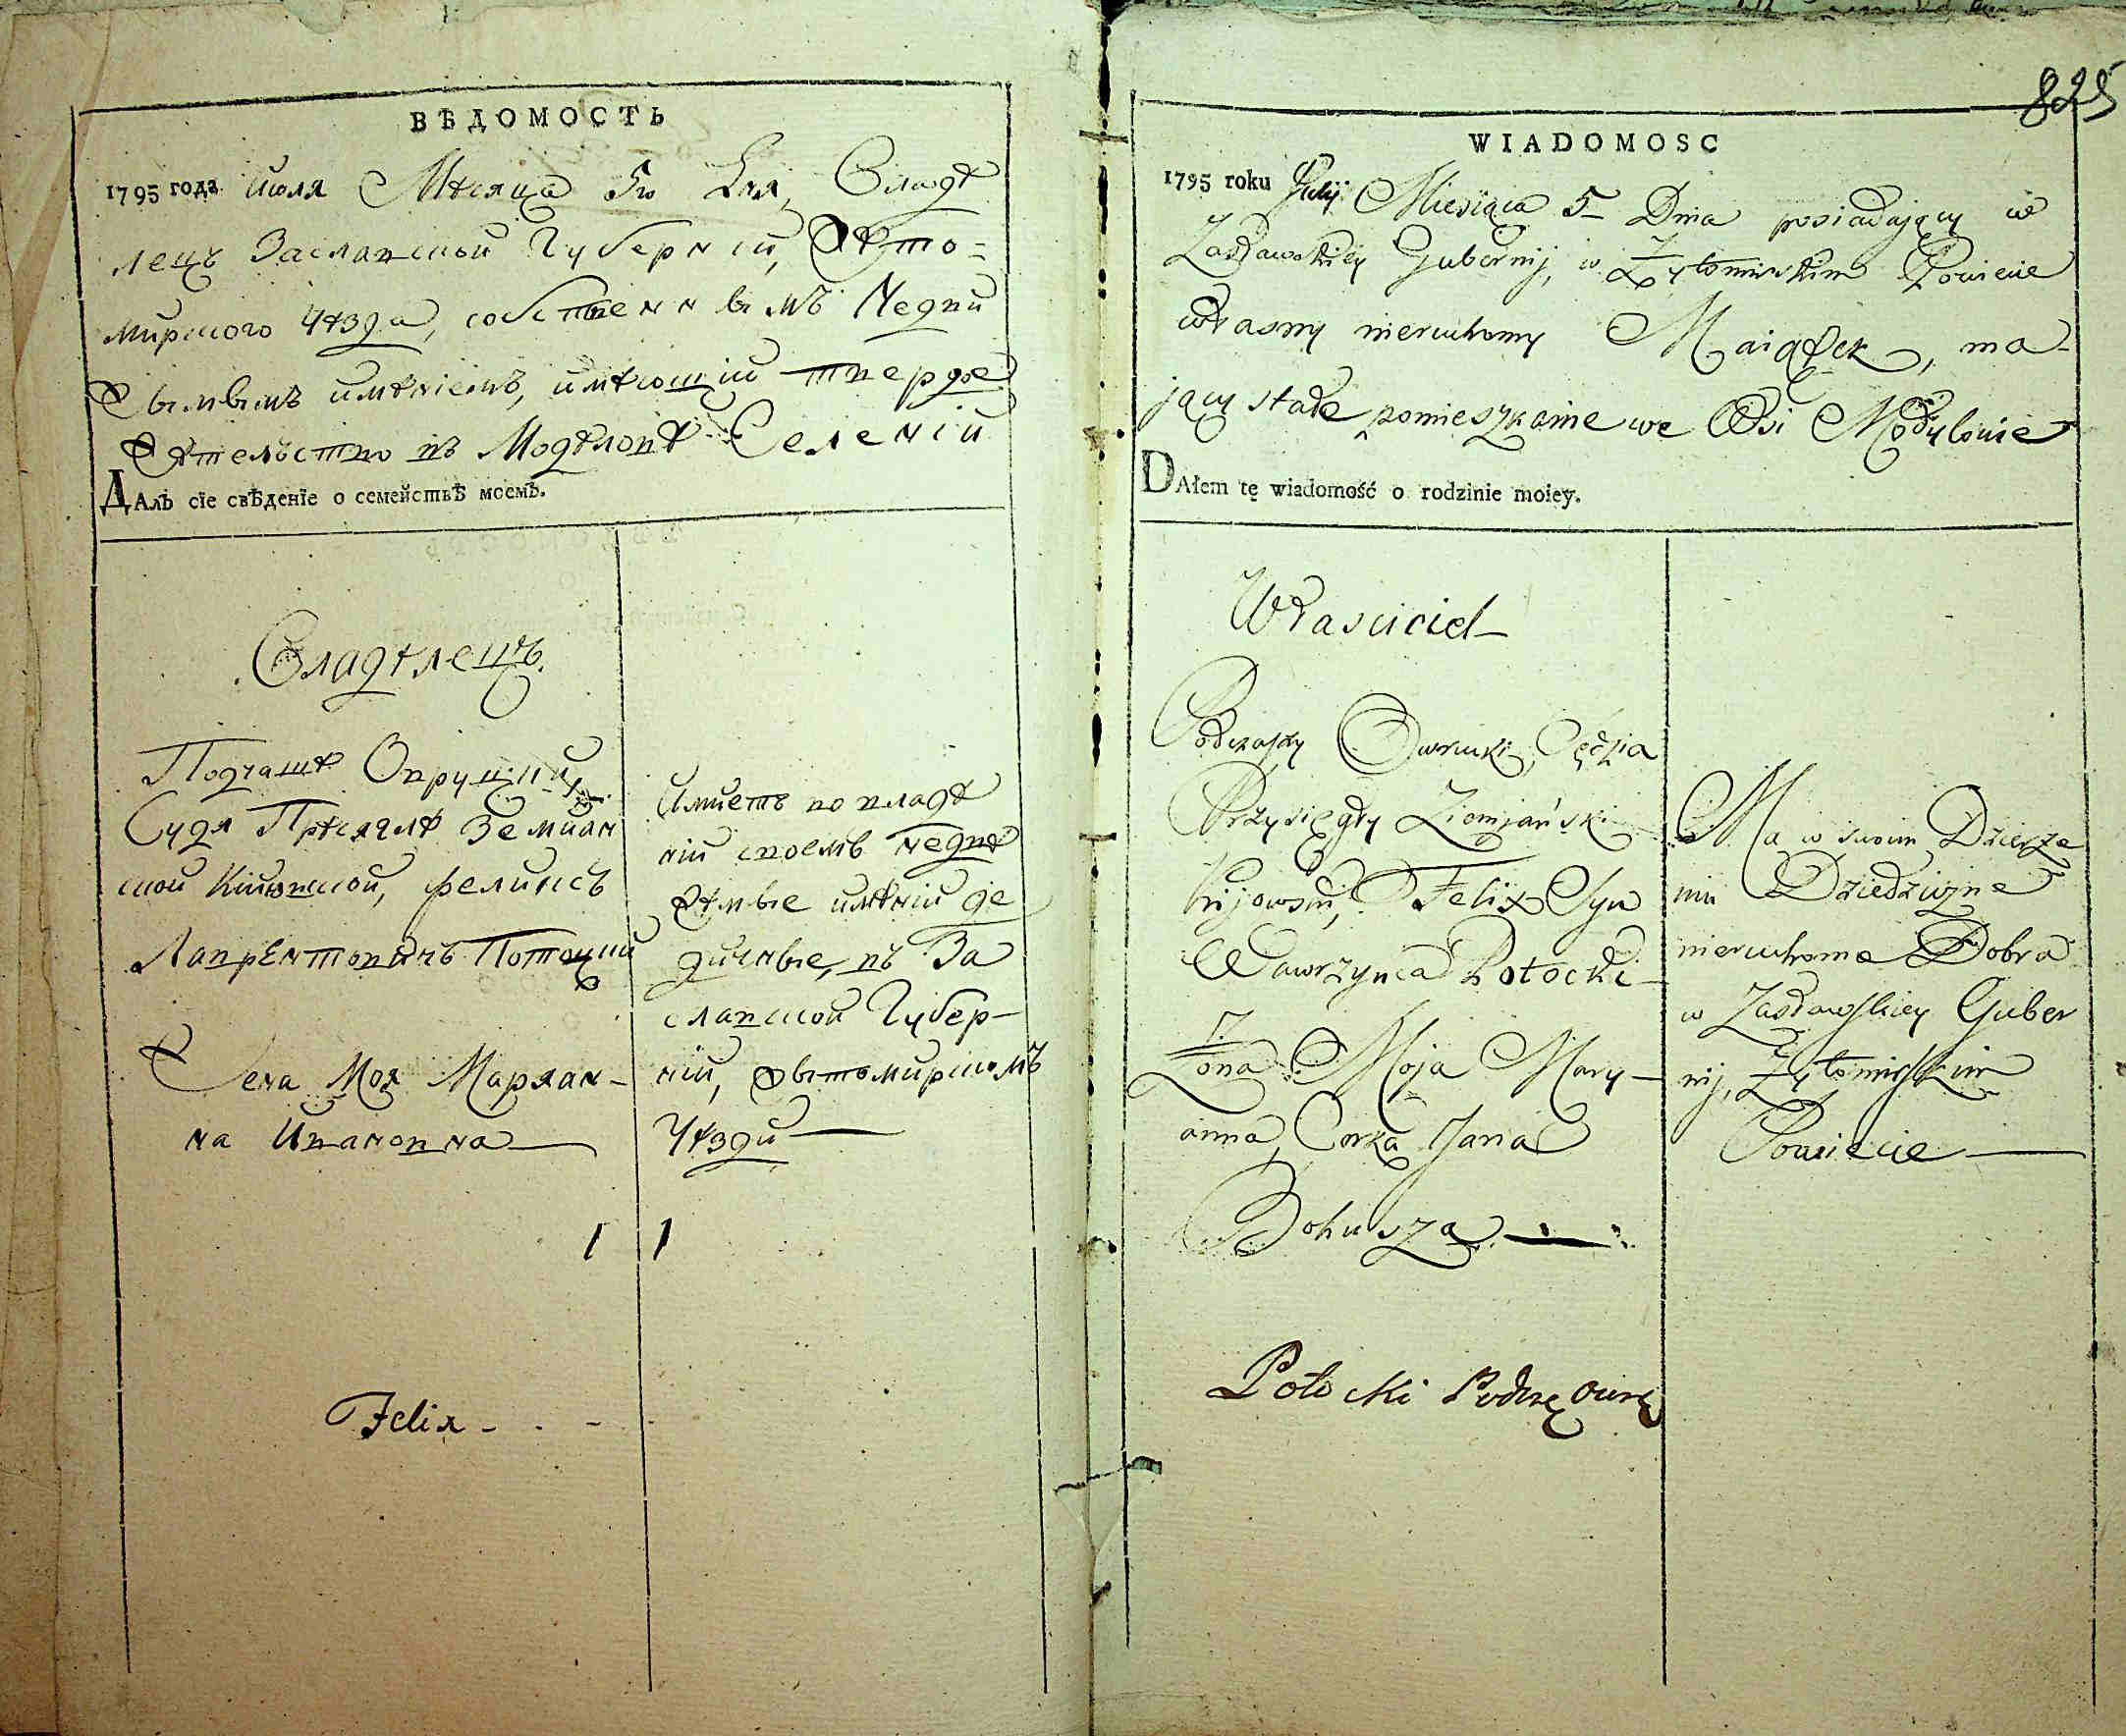 ВѢДОМОСТЬ
1795 года июля Мѣсяца 5го Дня, Владѣ
лецъ Заславской Губерніи, Жито-
мирского Уѣзда, собственнымъ Недви
жымымъ имѣніемъ, имѣющій твердое
Жительство въ Модѣловѣ Селеніи
ДАлЪ сіе свѣденіе о семействѣ моемЪ.
Владѣлецъ
Подчашѣ Овруцкій,
Судя Присяглѣ Земиан
ской Кіиовской, феликсъ
Лаврентовичъ Потоцкій
Жена Моя Марян-
на Ивановна
Имиетъ во владѣ
ніи своемъ недви
жимые имѣніи де
дичные, въ За
славской Губер-
ніи, Жытомирскомъ
Уѣзди
1 1
Felix
825
WIADOMOSC
1795 roku Julij Miesiąca 5 Dnia posiadający w
Zasławskiey Gubernij, w Żytomirskim Powiecie
własny nieruchomy Maiątek, ma-
jący stałe pomieszkanie we Wsi Modylowie
DAłem tę wiadomość o rodzinie moiey.
Własciciel
Podczaszy Owrucki, Sędzia
Przysięgły Ziemiański
Kijowski, Felix Syn
Wawrzyńca Potocki
Żona Moja Mary-
anna, Corka Jana
Bohusza
Ma w swoim Dzierże
niu Dziedziczne
nieruchome Dobra
w Zasławskiey Guber
nij, Żytomirskim
Powiecie
Potocki